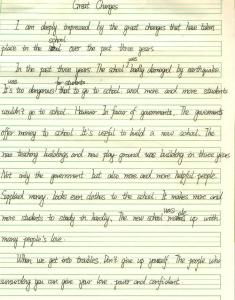 Great Changes
I am deeply impressed by the great changes that have taken
school
place in the over the past three years.
was
In the past three years. The school badly damaged by earthquake.
was for students
It's too dangerous that to go to school and more and more students
wouldn't go to school. However In favor of governments. The governments
offer money to school. It's useful to build a new school. The
new teaching buildings and new play ground was building in three years
Not only the government but also more and more helpful people.
Supplied money, books even clothes to the school. It makes more and
more students to study in hardly. The new school was up with
many people's love.
When we get into troubles. Don't give up yourself. The people who
surrounding you can give your love power and confident.